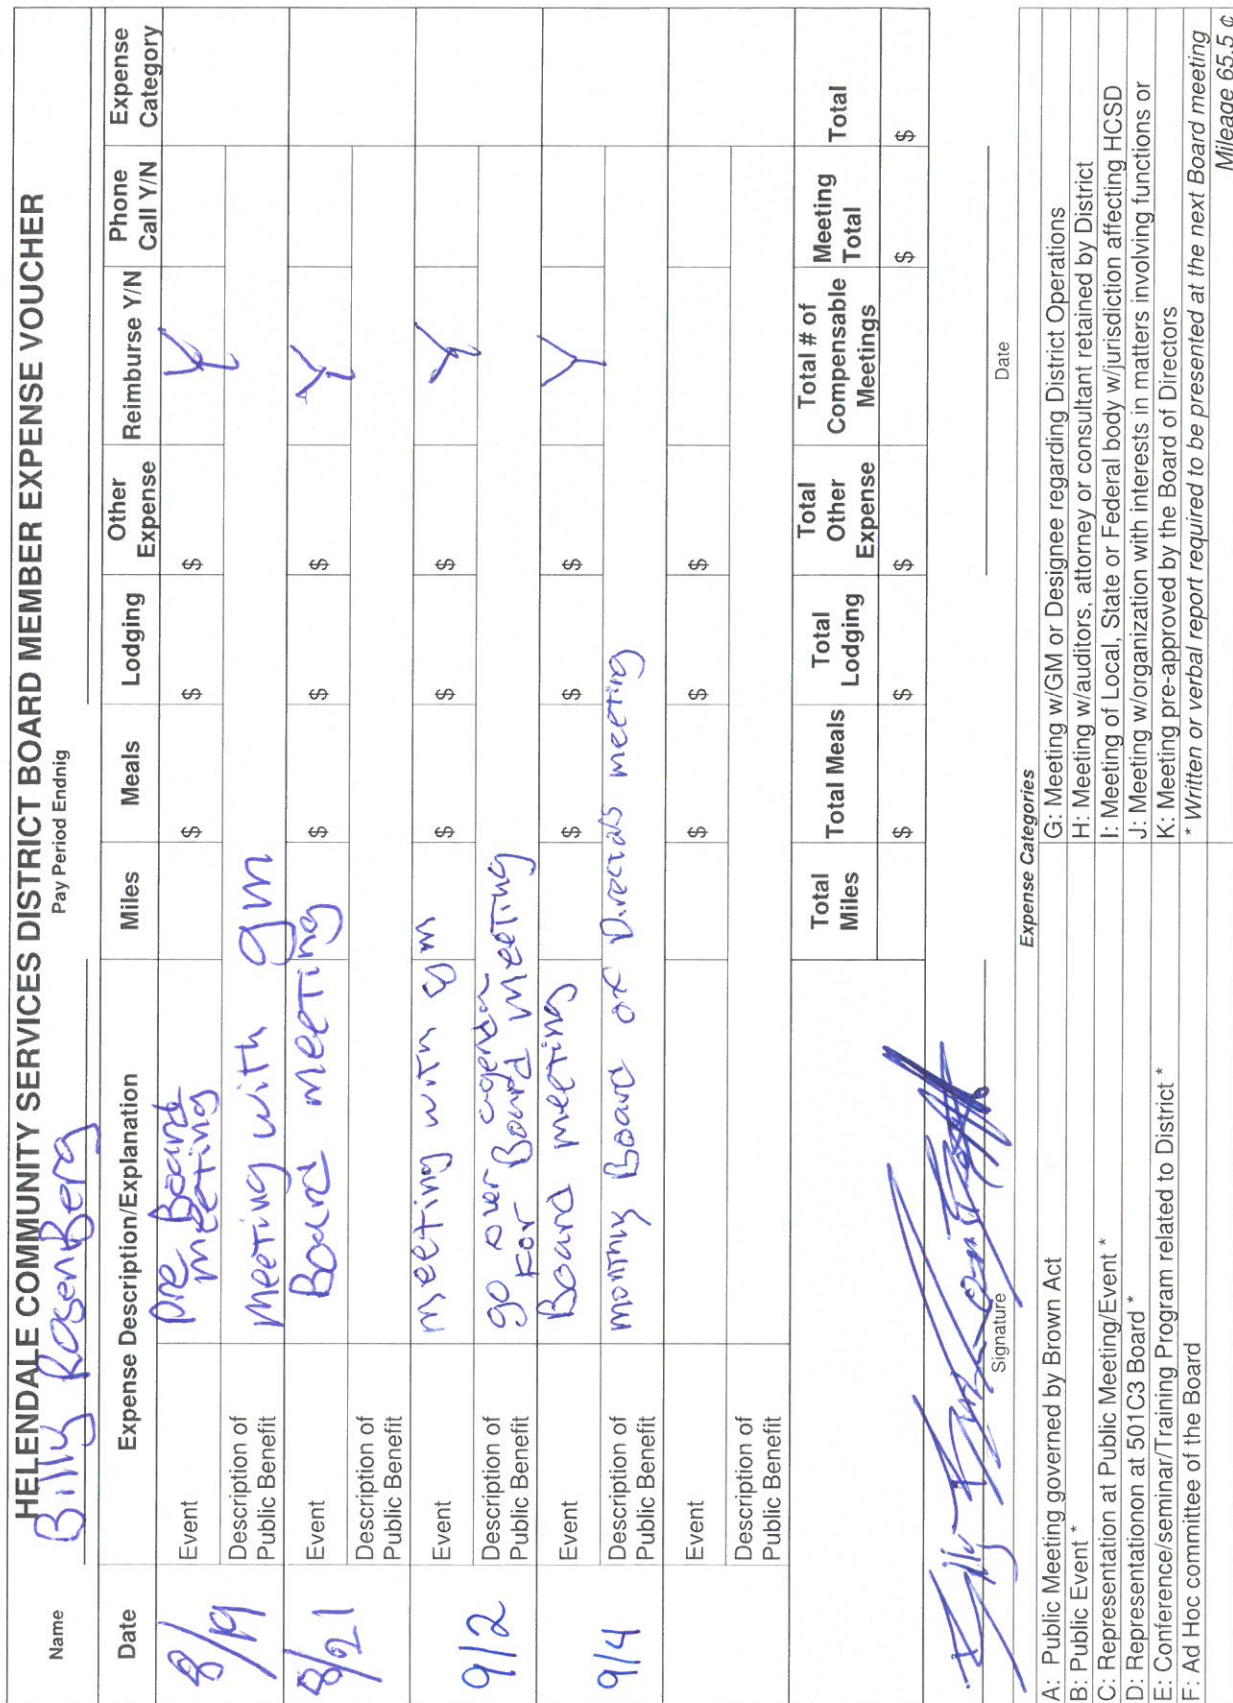 HELENDALE COMMUNITY SERVICES DISTRICT BOARD MEMBER EXPENSE VOUCHER
Name Billy RosenBerg Pay Period Endnig
Date Expense Description/Explanation Miles Meals Lodging Other Expense Reimburse Y/N Phone Call Y/N Expense Category
8/19 Event pre Board meeting $ $ $ Y
Description of Public Benefit meeting with gm
8/21 Event Board meeting $ $ $ Y
Description of Public Benefit
9/2 Event meeting with gm $ $ $ Y
Description of Public Benefit go over agenda For Board meeting
9/4 Event Board meeting $ $ $ Y
Description of Public Benefit monthly Board of Directors meeting
Event $ $ $
Description of Public Benefit
Total Miles Total Meals Total Lodging Total Other Expense Total # of Compensable Meetings Meeting Total Total
$ $ $ $ $
Signature Date
Expense Categories
A: Public Meeting governed by Brown Act
B: Public Event *
C: Representation at Public Meeting/Event *
D: Representationon at 501C3 Board *
E: Conference/seminar/Training Program related to District *
F: Ad Hoc committee of the Board
G: Meeting w/GM or Designee regarding District Operations
H: Meeting w/auditors, attorney or consultant retained by District
I: Meeting of Local, State or Federal body w/jurisdiction affecting HCSD
J: Meeting w/organization with interests in matters involving functions or
K: Meeting pre-approved by the Board of Directors
* Written or verbal report required to be presented at the next Board meeting
Mileage 65.5 ¢